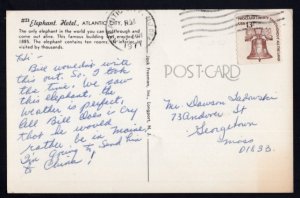 Elephant Hotel, ATLANTIC CITY, N.J.
The only elephant in the world you can go through and
come out alive. This famous building was erected in
1885. The elephant contains ten rooms
visited by thousands.
Hi-
Bill wouldn't write
this out. So I took
the time. We saw
this elephant, the
weather is perfect,
All Bill does is cry
that he would
rather be in Maine.
I'm going to send him
to China!
POST-CARD
Mr Dawson
73 Andover St
Georgetown
Mass
01833
13c